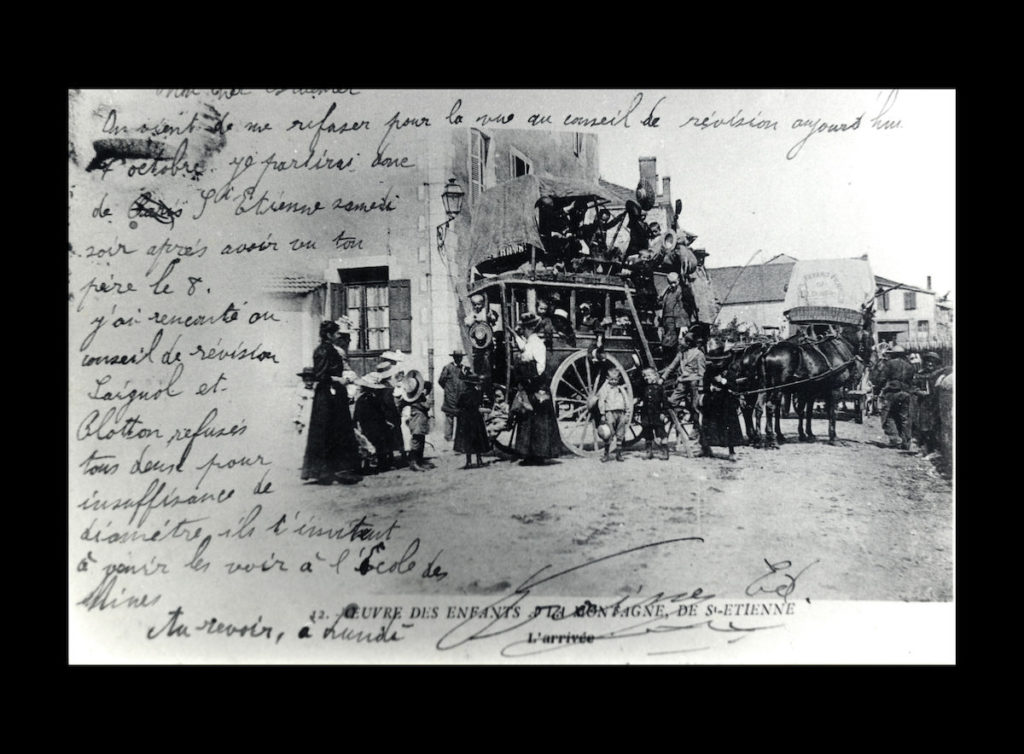 Mon cher
On vient de me refuser pour la vue au conseil de révision aujourd'hui
7 octobre. je partirai donc
de St Etienne samedi
soir après avoir vu ton
père le 8.
j'ai rencontré au
conseil de révision
et
Blotton refusés
tous deux pour
insuffisance de
diamétre, ils t'invitent
à venir les voir à l'École des
Mines
Au revoir, à Lundi
ENFANTS
12. ŒUVRE DES ENFANTS A LA MONTAGNE, DE St-ETIENNE
L'arrivée